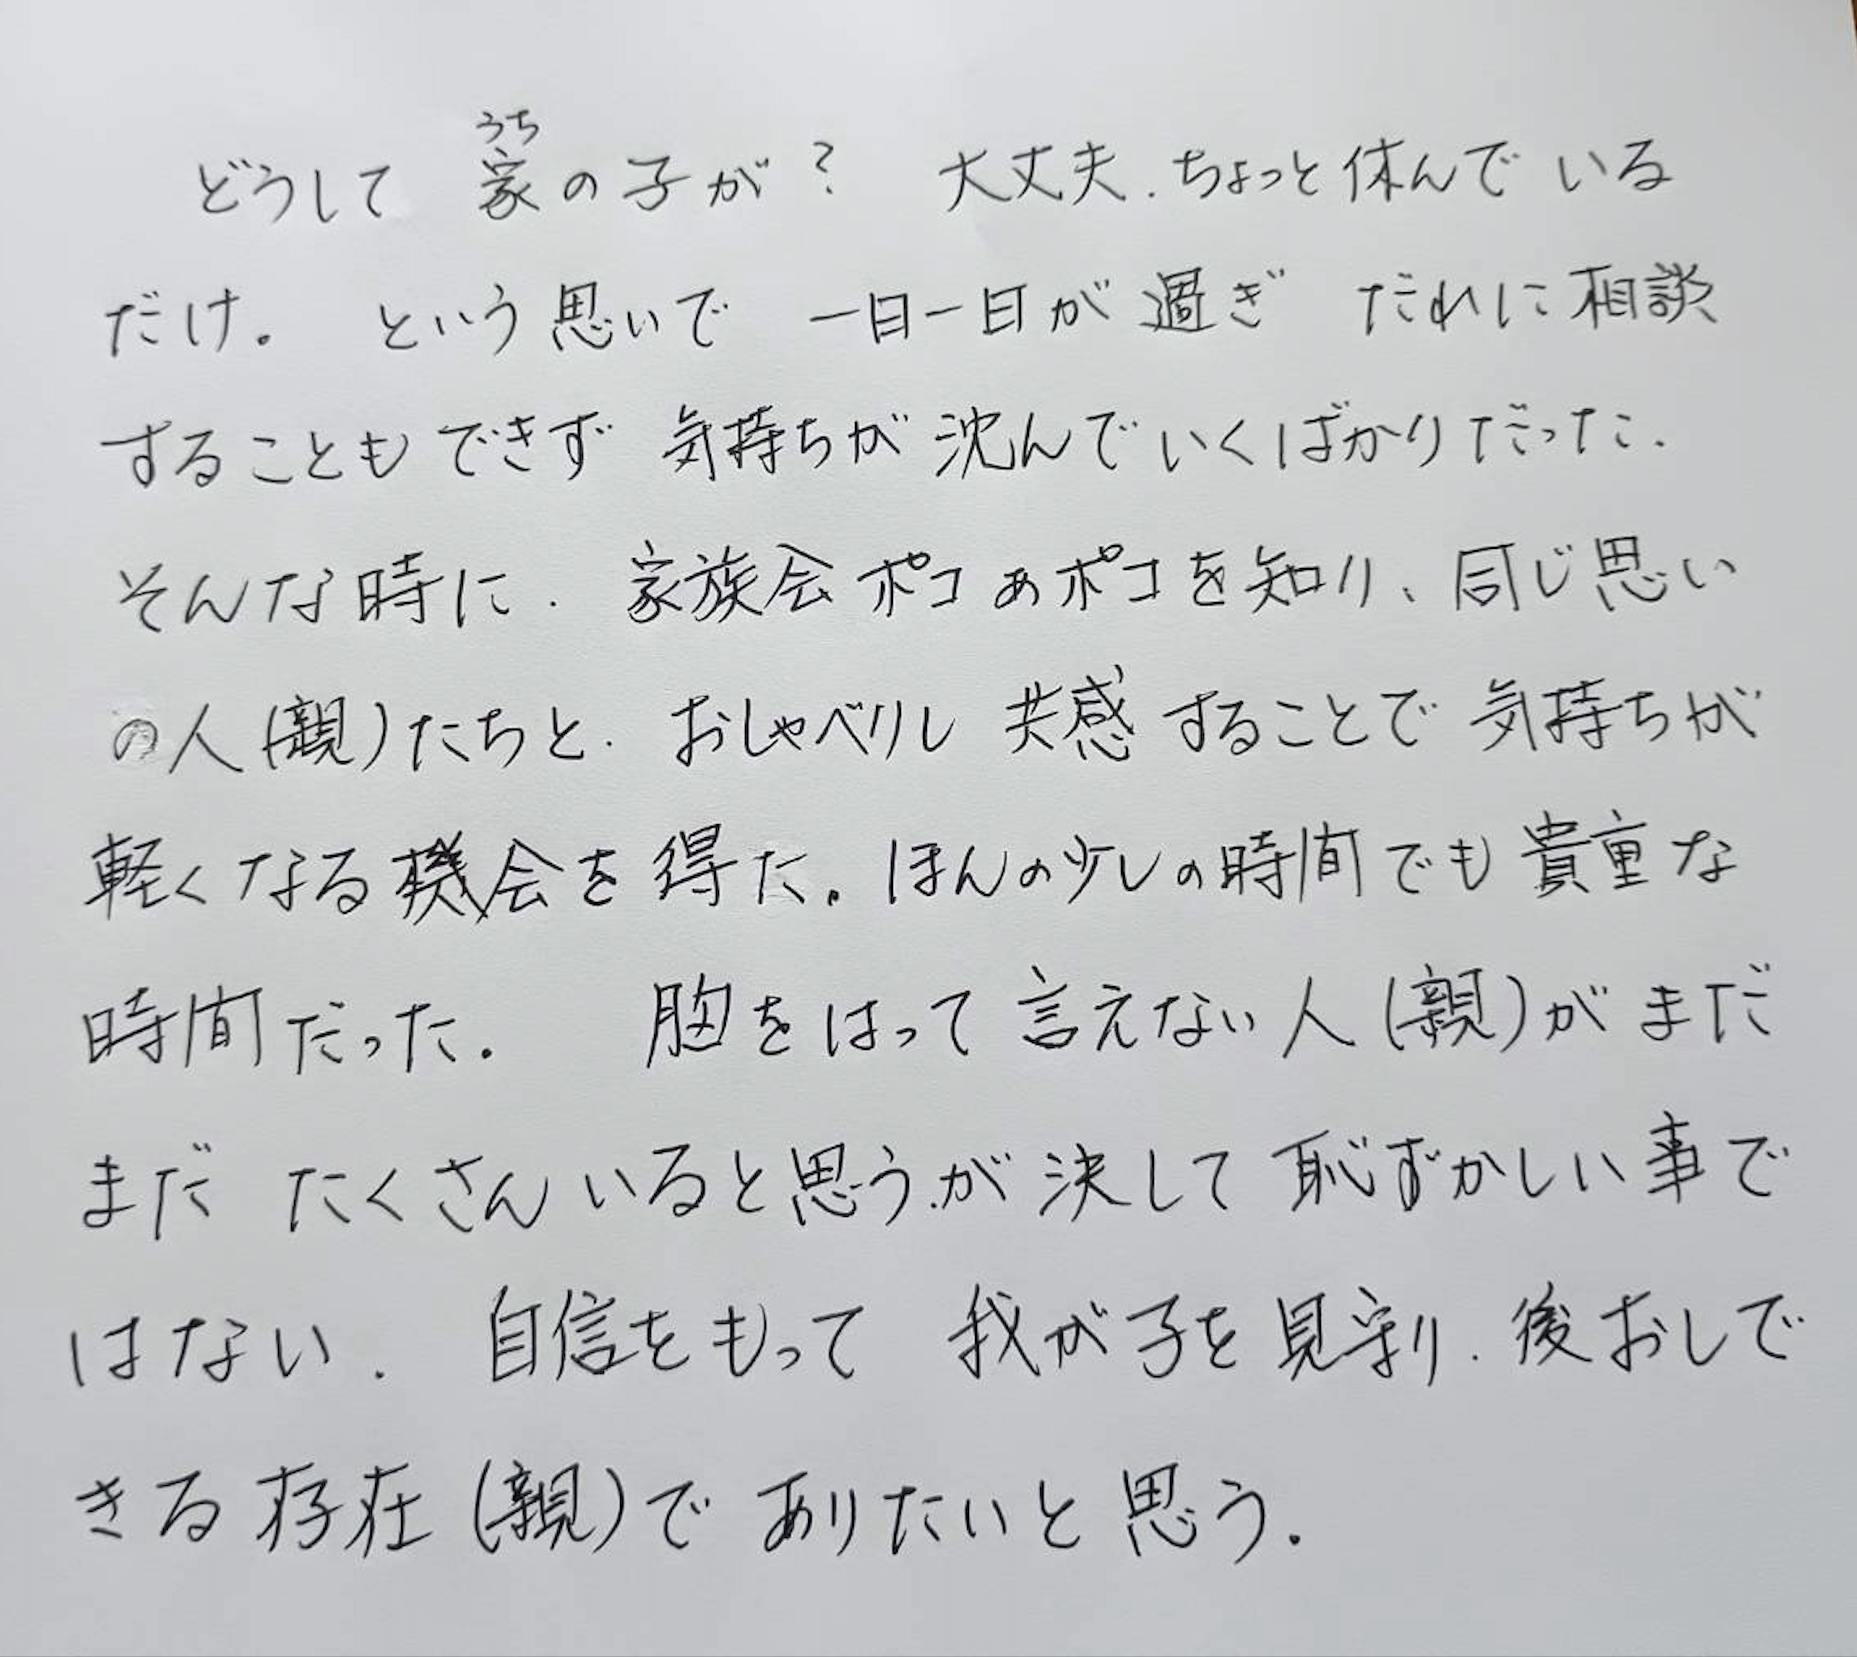 どうして 家の子が? 大丈夫.ちょっと休んでいる
うち
だけ。 という思いで 一日一日が過ぎ だれに相談
することもできず 気持ちが沈んでいくばかりだった.
そんな時に. 家族会ポコぁポコを知り、同じ思い
の人(親)たちと. おしゃべりし 共感することで気持ちが
軽くなる機会を得た。ほんの少しの時間でも貴重な
時間だった. 胸をはって言えない人(親)がまだ
まだ たくさんいると思う.が決して恥ずかしい事で
はない. 自信をもって 我が子を見守り.後おしで
きる存在(親)で ありたいと思う.